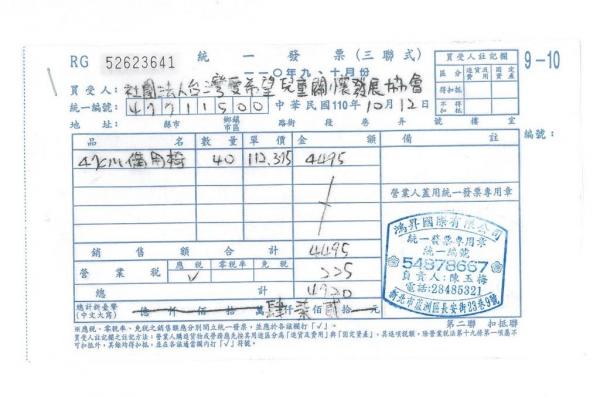 RG 52623641
統一發票(三聯式)
一一〇年九、十月份
9-10
買受人註記欄
區分 進貨及費用 固定資產
得扣抵
不得扣抵
買受人: 社團法人台灣愛希望兒童關懷發展協會
統一編號: 47711500 中華民國110年10月12日
地址: 縣市 鄉鎮市區 路街 段 巷 弄 號 樓 室
編號:
品名 數量 單價 金額 備註
40 112.375 4495
營業人蓋用統一發票專用章
銷售額合計 4495
營業稅 應稅 零稅率 免稅 225
✓
總計 4720
總計新臺幣(中文大寫) 億 仟 佰 拾 萬 仟肆 佰柒 拾貳 元
鴻昇國際有限公司
統一發票專用章
統一編號
54878667
負責人:陳玉梅
電話:28485321
新北市蘆洲區長安街23巷9號
第二聯 扣抵聯
※應稅、零稅率、免稅之銷售額應分別開立統一發票,並應於各該欄打「✓」。
買受人註記欄之註記方法:營業人購進貨物或勞務應先按其用途區分為「進貨及費用」與「固定資產」,其進項稅額,除營業稅法第十九條第一項屬不可扣抵外,其餘均得扣抵,並在各該適當欄內打「✓」符號。